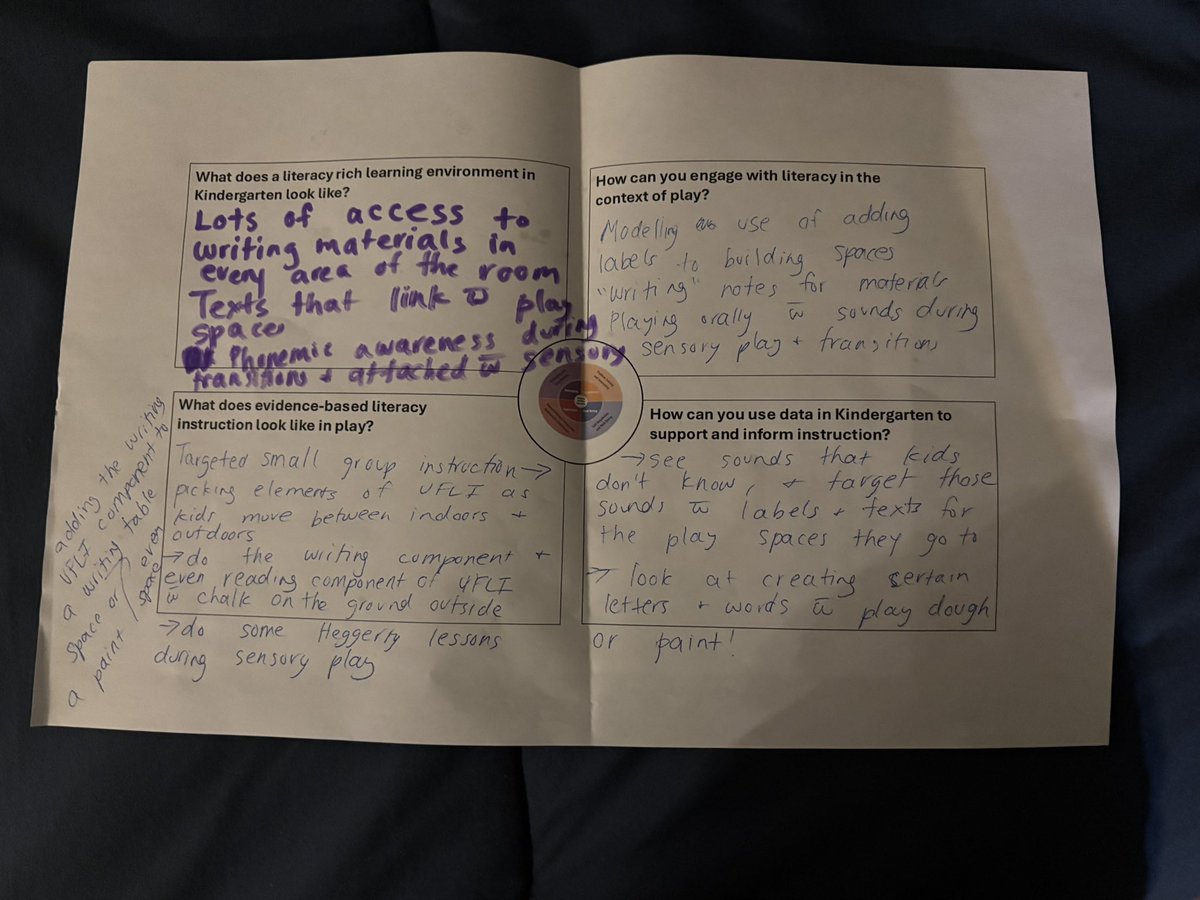 What does a literacy rich learning environment in
Kindergarten look like?
Lots of access to
writing materials in
every area of the room
Texts that link w̄ play
space
Phonemic awareness during
transitions + attached w̄ sensory
How can you engage with literacy in the
context of play?
Modelling use of adding
labels to building spaces
"writing" notes for materials
Playing orally w̄ sounds during
sensory play + transitions
What does evidence-based literacy
instruction look like in play?
Targeted small group instruction →
picking elements of UFLI as
kids move between indoors +
outdoors
→ do the writing component +
even reading component of UFLI
w̄ chalk on the ground outside
→ do some Heggerty lessons
during sensory play
adding the writing
UFLI component to
a writing table
space or even
a paint space
How can you use data in Kindergarten to
support and inform instruction?
→ see sounds that kids
don't know, + target those
sounds w̄ labels + texts for
the play spaces they go to
→ look at creating certain
letters + words w̄ play dough
or paint!